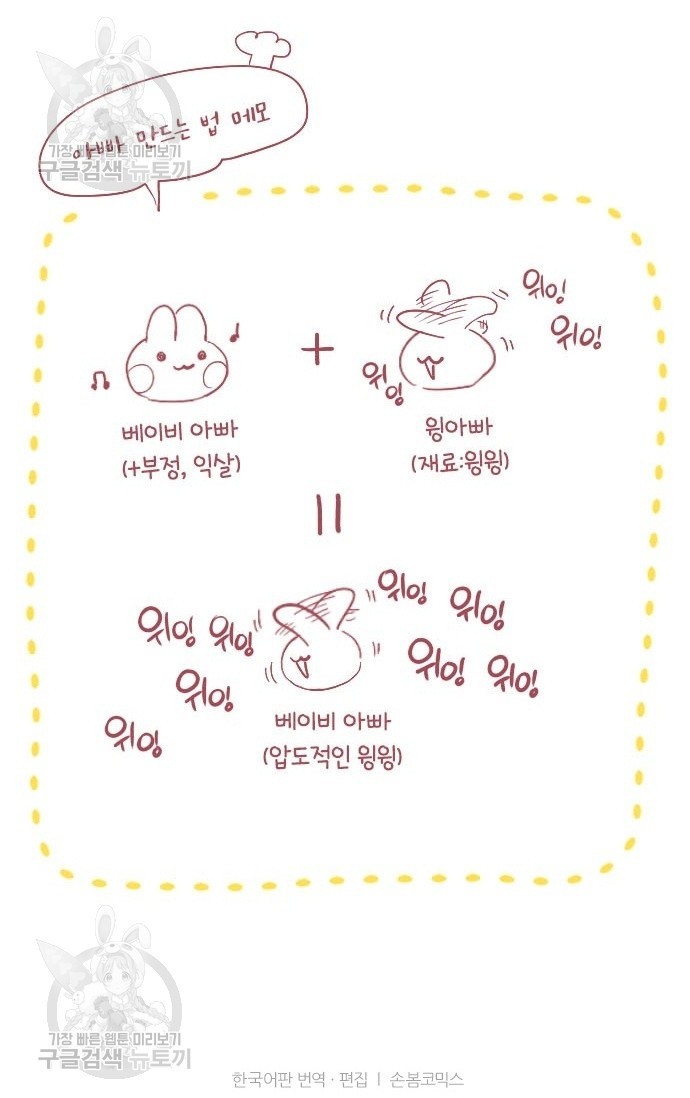 아빠 만드는 법 메모
가장 빠른 웹툰 미리보기
구글검색 뉴토끼
위잉
위잉
위잉
+
베이비 아빠
(+부정, 익살)
윙아빠
(재료:윙윙)
=
위잉 위잉
위잉 위잉
위잉 위잉
위잉
위잉
베이비 아빠
(압도적인 윙윙)
가장 빠른 웹툰 미리보기
구글검색 뉴토끼
한국어판 번역 · 편집 ㅣ 손봄코믹스